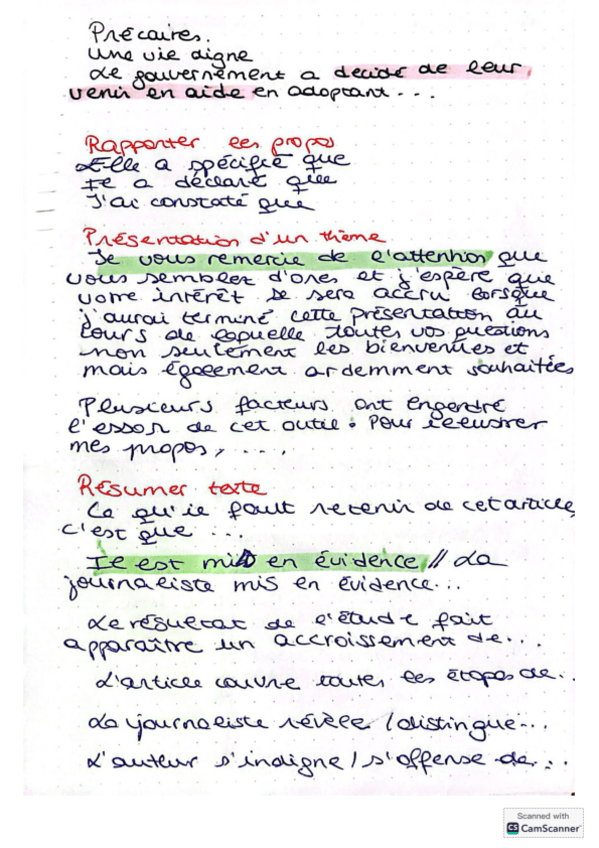 Précaires.
Une vie digne
Le gouvernement a décidé de leur
venir en aide en adoptant...
Rapporter les propos
Elle a spécifié que
Il a déclaré que
J'ai constaté que
Présentation d'un thème
Je vous remercie de l'attention que
vous semblez d'ores et j'espère que
votre intérêt se sera accru lorsque
j'aurai terminé cette présentation au
cours de laquelle toutes vos questions
non seulement les bienvenues et
mais également ardemment souhaitées
Plusieurs facteurs ont engendré
l'essor de cet outil. Pour illustrer
mes propos, ....,
Résumer texte
Ce qu'il faut retenir de cet article,
c'est que ...
Il est mis en évidence // La
journaliste mis en évidence...
Le résultat de l'étude fait
apparaître un accroissement de...
L'article couvre toutes les étapes de..
La journaliste révèle / distingue...
L'auteur s'indigne / s'offense de...
Scanned with
CS CamScanner